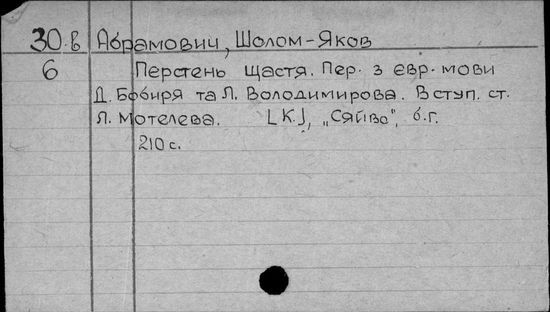 30.в Абрамович, Шолом-Яков
6 Перстень щастя. Пер. з евр. мови
Д. Бобиря та Л. Володимирова. Вступ. ст.
Л. Мотелева. [К.], „Сяйво", б.г.
210 с.